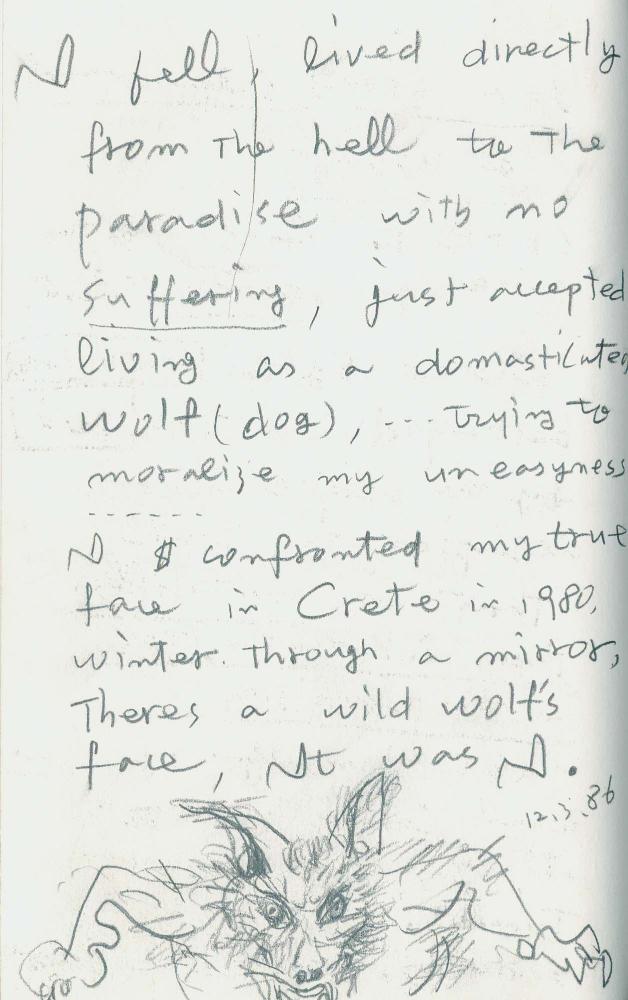 I fell, lived directly
from the hell to the
paradise with no
suffering, just accepted
living as a domasticated
wolf (dog), ... trying to
moralize my uneasyness
-------
I confronted my true
face in Crete in 1980,
winter. through a mirror,
Theres a wild wolf's
face, It was I.
12.3.86